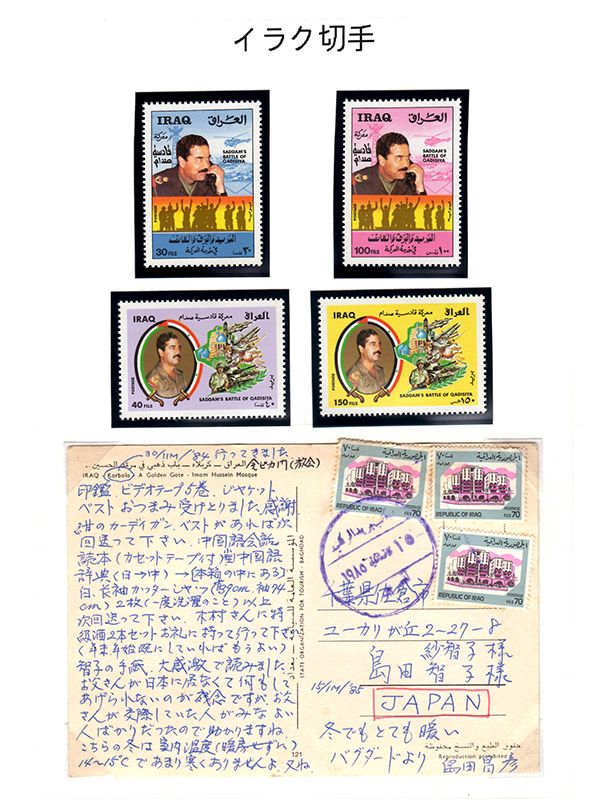 イラク切手
IRAQ العراق
معركة
قادسية
صدام
SADDAM'S
BATTLE OF
QADISIYA
POSTAGE
البريد والبرق والهاتف
في خدمة المعركة
30 FILS ٣٠ فلسا
IRAQ العراق
معركة
قادسية
صدام
SADDAM'S
BATTLE OF
QADISIYA
POSTAGE
البريد والبرق والهاتف
في خدمة المعركة
100 FILS ١٠٠ فلس
IRAQ معركة قادسية صدام العراق
POSTAGE
بريد
40 FILS
SADDAM'S BATTLE OF QADISIYA
٤٠ فلسا
IRAQ معركة قادسية صدام العراق
POSTAGE
بريد
150 FILS
SADDAM'S BATTLE OF QADISIYA
١٥٠ فلس
84 行ってきました
金ピカ門
العراق - كربلاء - باب ذهبي في مرقد الحسين
IRAQ - Karbala - A Golden Gate - Imam Hussein Mosque
印鑑 ビデオテープ5巻、ジャケット
ベスト おつまみ受けとりました、感謝
紺のカーディガン、ベストがあれば次
回送って下さい、中国語会話
読本(カセットテープ付)中国語
辞典(日つ中)→(本箱の中にある)
白、長袖カッターシャツ(首39cm、袖74
cm)2枚(一度洗濯のこと)以上
次回送って下さい、木村さんに特
級酒2本セットお礼に持って行って下さい
(年末年始既にしていればもうよい)
智子の手紙、大感激で読みました
お父さんが日本に居なくて何もして
あげられないのが残念ですが、お父
さんが交際していた人がみなよい
人ばかりだったので助かりますね
こちらの冬は室内温度(暖房せずに)
14~15℃であまり寒くありませんよ 又ね
المؤسسة العامة للسياحة - بغداد
STATE ORGANIZATION FOR TOURISM - BAGHDAD
121
الجمهورية العراقية
REPUBLIC OF IRAQ
POSTAGE
FILS 70
الجمهورية العراقية
REPUBLIC OF IRAQ
POSTAGE
FILS 70
الجمهورية العراقية
REPUBLIC OF IRAQ
POSTAGE
FILS 70
千葉県佐倉市
ユーカリが丘2-27-8
紗智子様
島田智子様
15/1M/'85
JAPAN
冬でもとても暖い
バグダードより 島田昌彦
حقوق الطبع والنسخ محفوظة
Reproduction prohibited